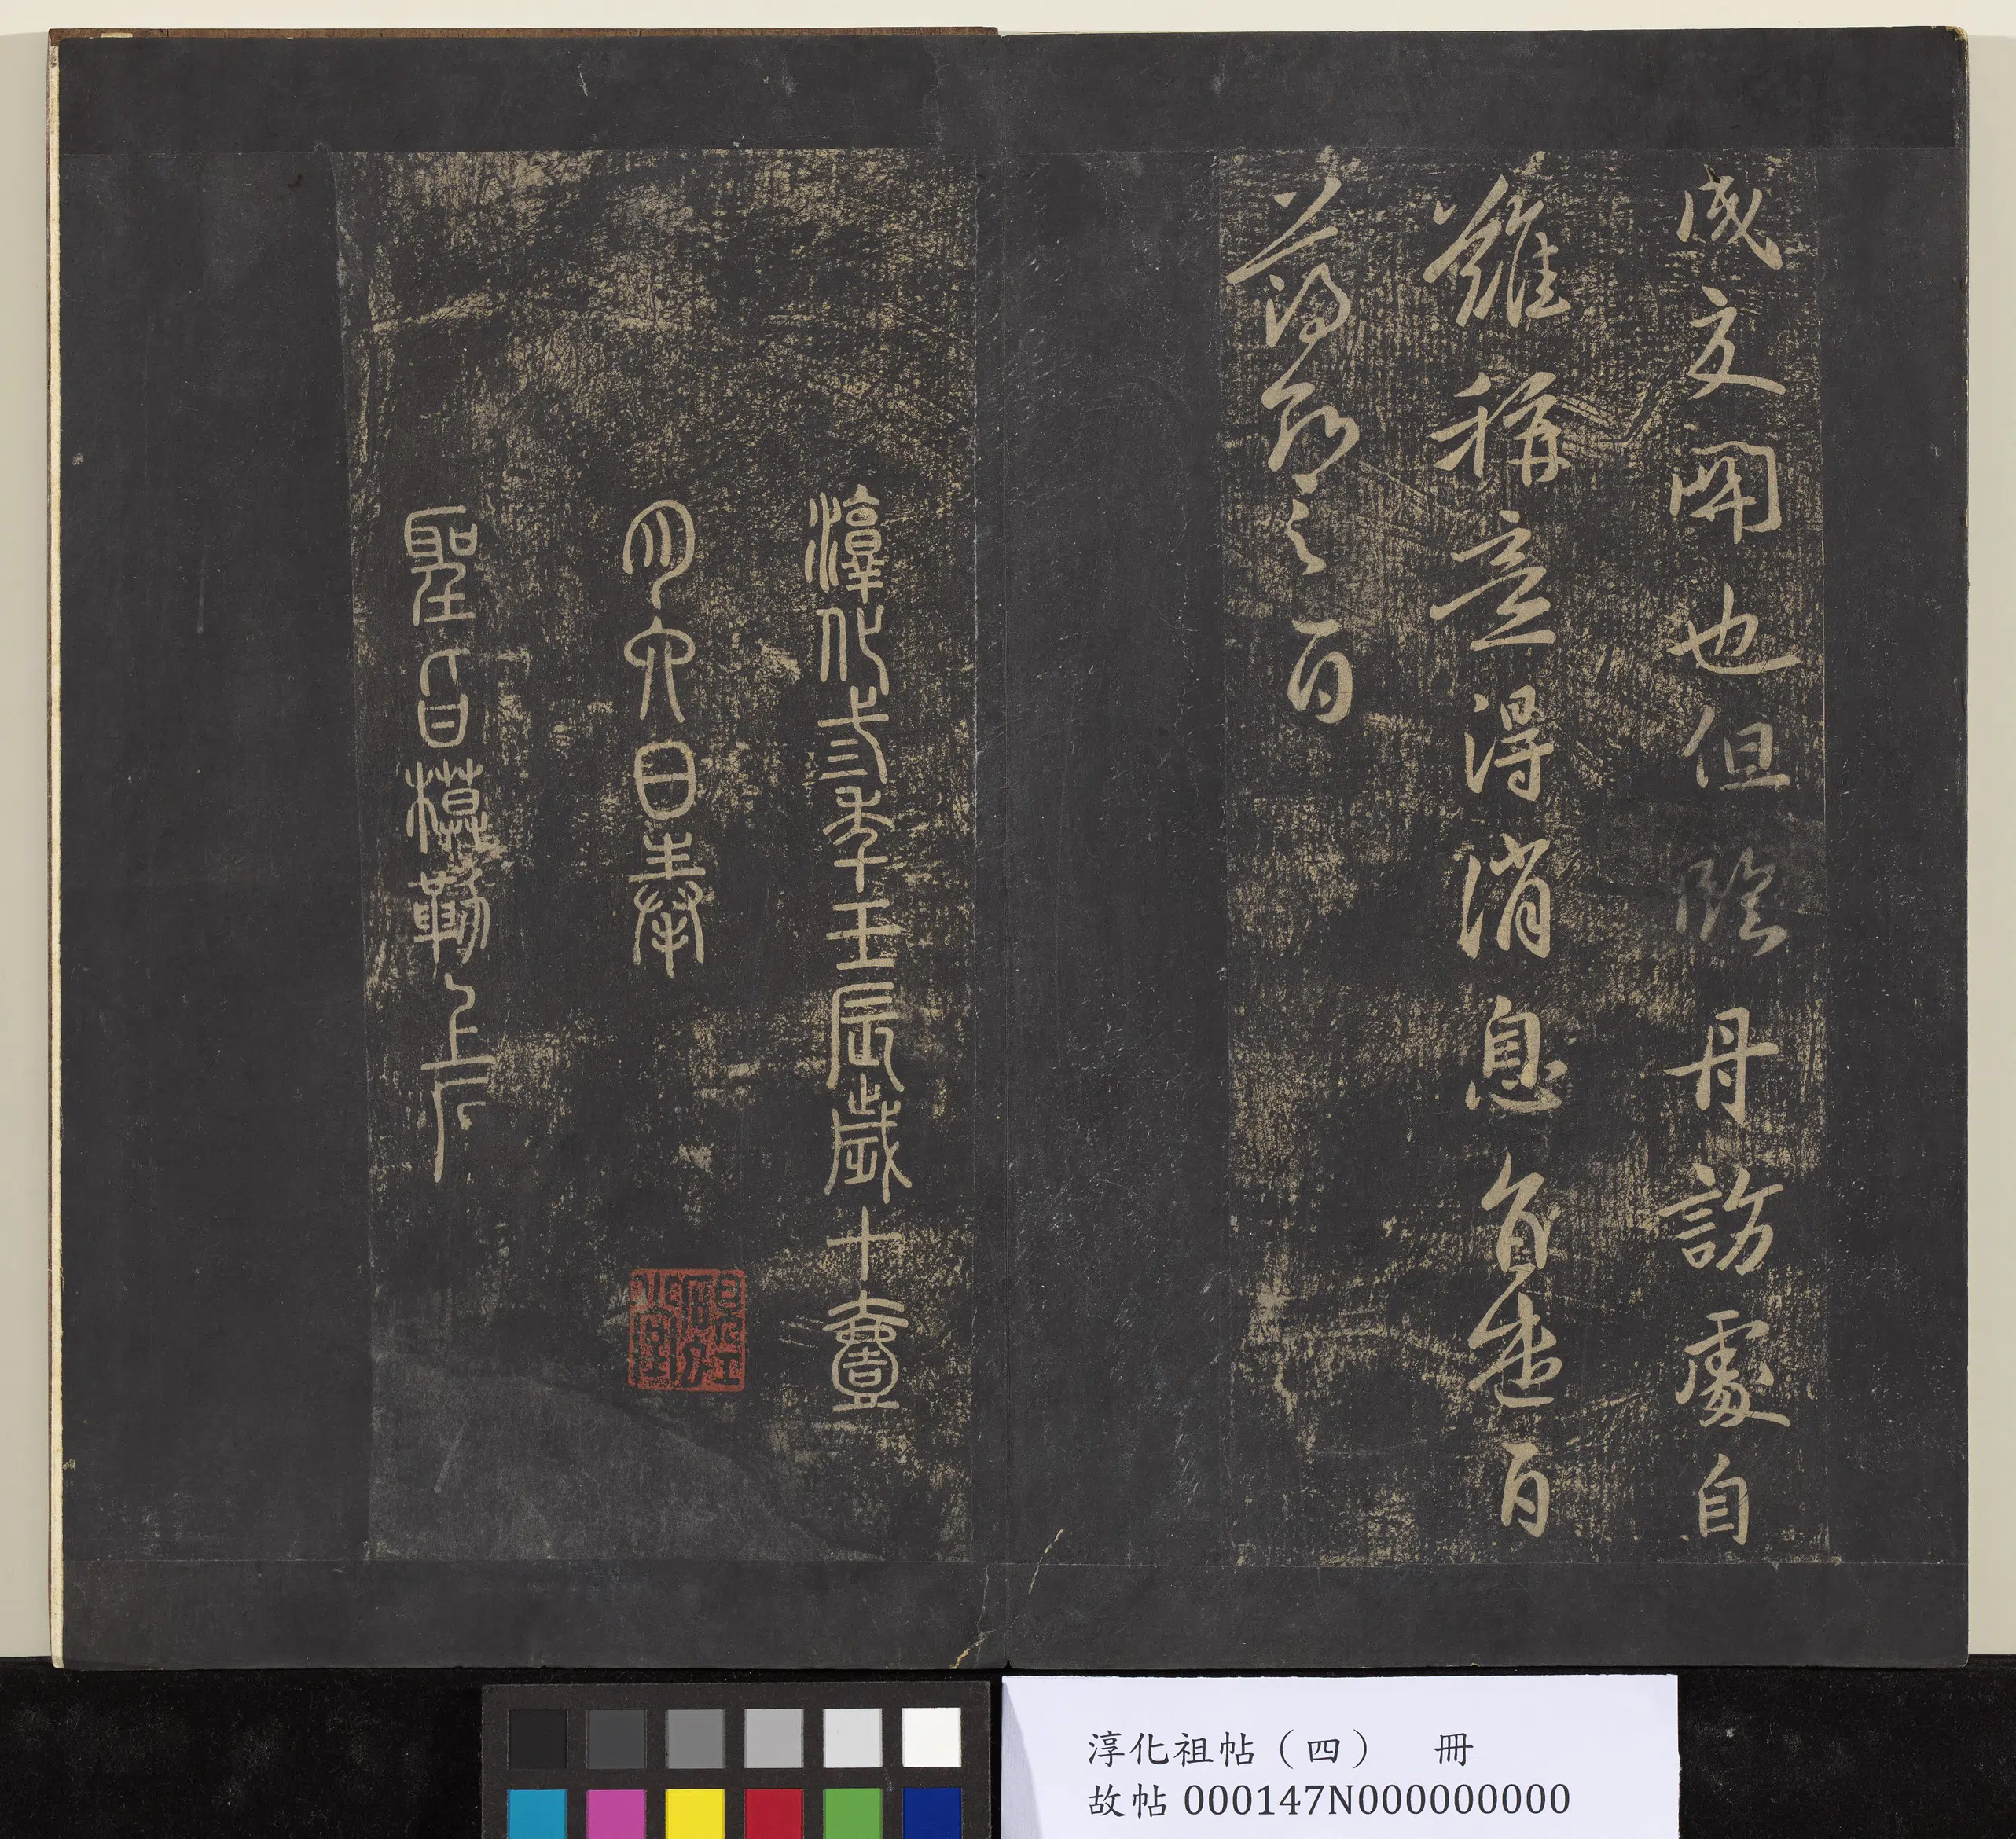 成文開也但丹訪處自
難稱意得消息述白
薄紹之白
淳化三年壬辰歲十壹
月六日奉
聖旨模勒上石
淳化祖帖（四） 冊
故帖 000147N000000000